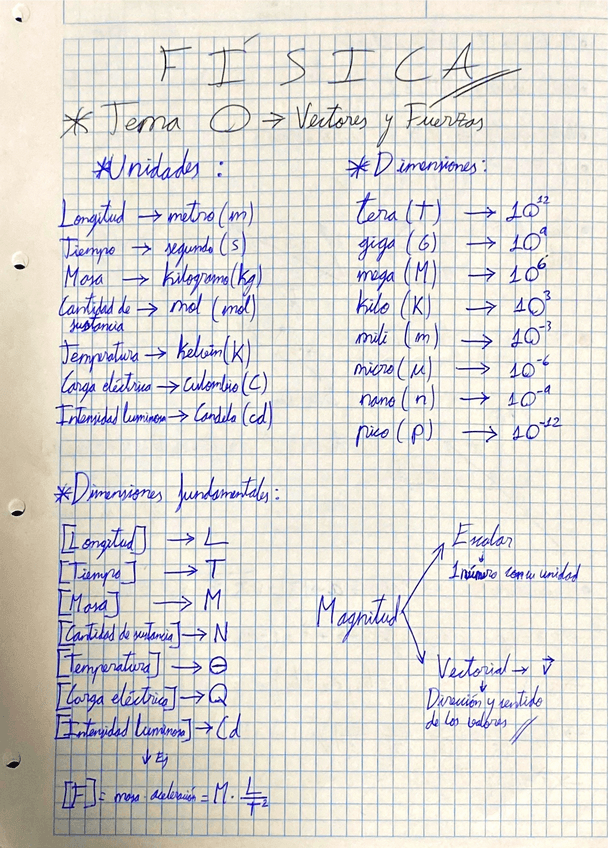 FÍSICA
* Tema 0 → Vectores y Fuerzas
* Unidades :
Longitud → metro (m)
Tiempo → segundo (s)
Masa → Kilogramo (Kg)
Cantidad de sustancia → mol (mol)
Temperatura → Kelvin (K)
Carga eléctrica → Culombio (C)
Intensidad luminosa → Candela (cd)
* Dimensiones :
tera (T) → 10^12
giga (G) → 10^9
mega (M) → 10^6
kilo (K) → 10^3
mili (m) → 10^-3
micro (μ) → 10^-6
nano (n) → 10^-9
pico (p) → 10^-12
* Dimensiones fundamentales :
[Longitud] → L
[Tiempo] → T
[Masa] → M
[Cantidad de sustancia] → N
[Temperatura] → Θ
[Carga eléctrica] → Q
[Intensidad luminosa] → Cd
↓ Ej
[F] = masa · aceleración = M · L/T^2
Magnitud
Escalar
↓
1 número con su unidad
Vectorial → v⃗
↓
Dirección y sentido
de los valores